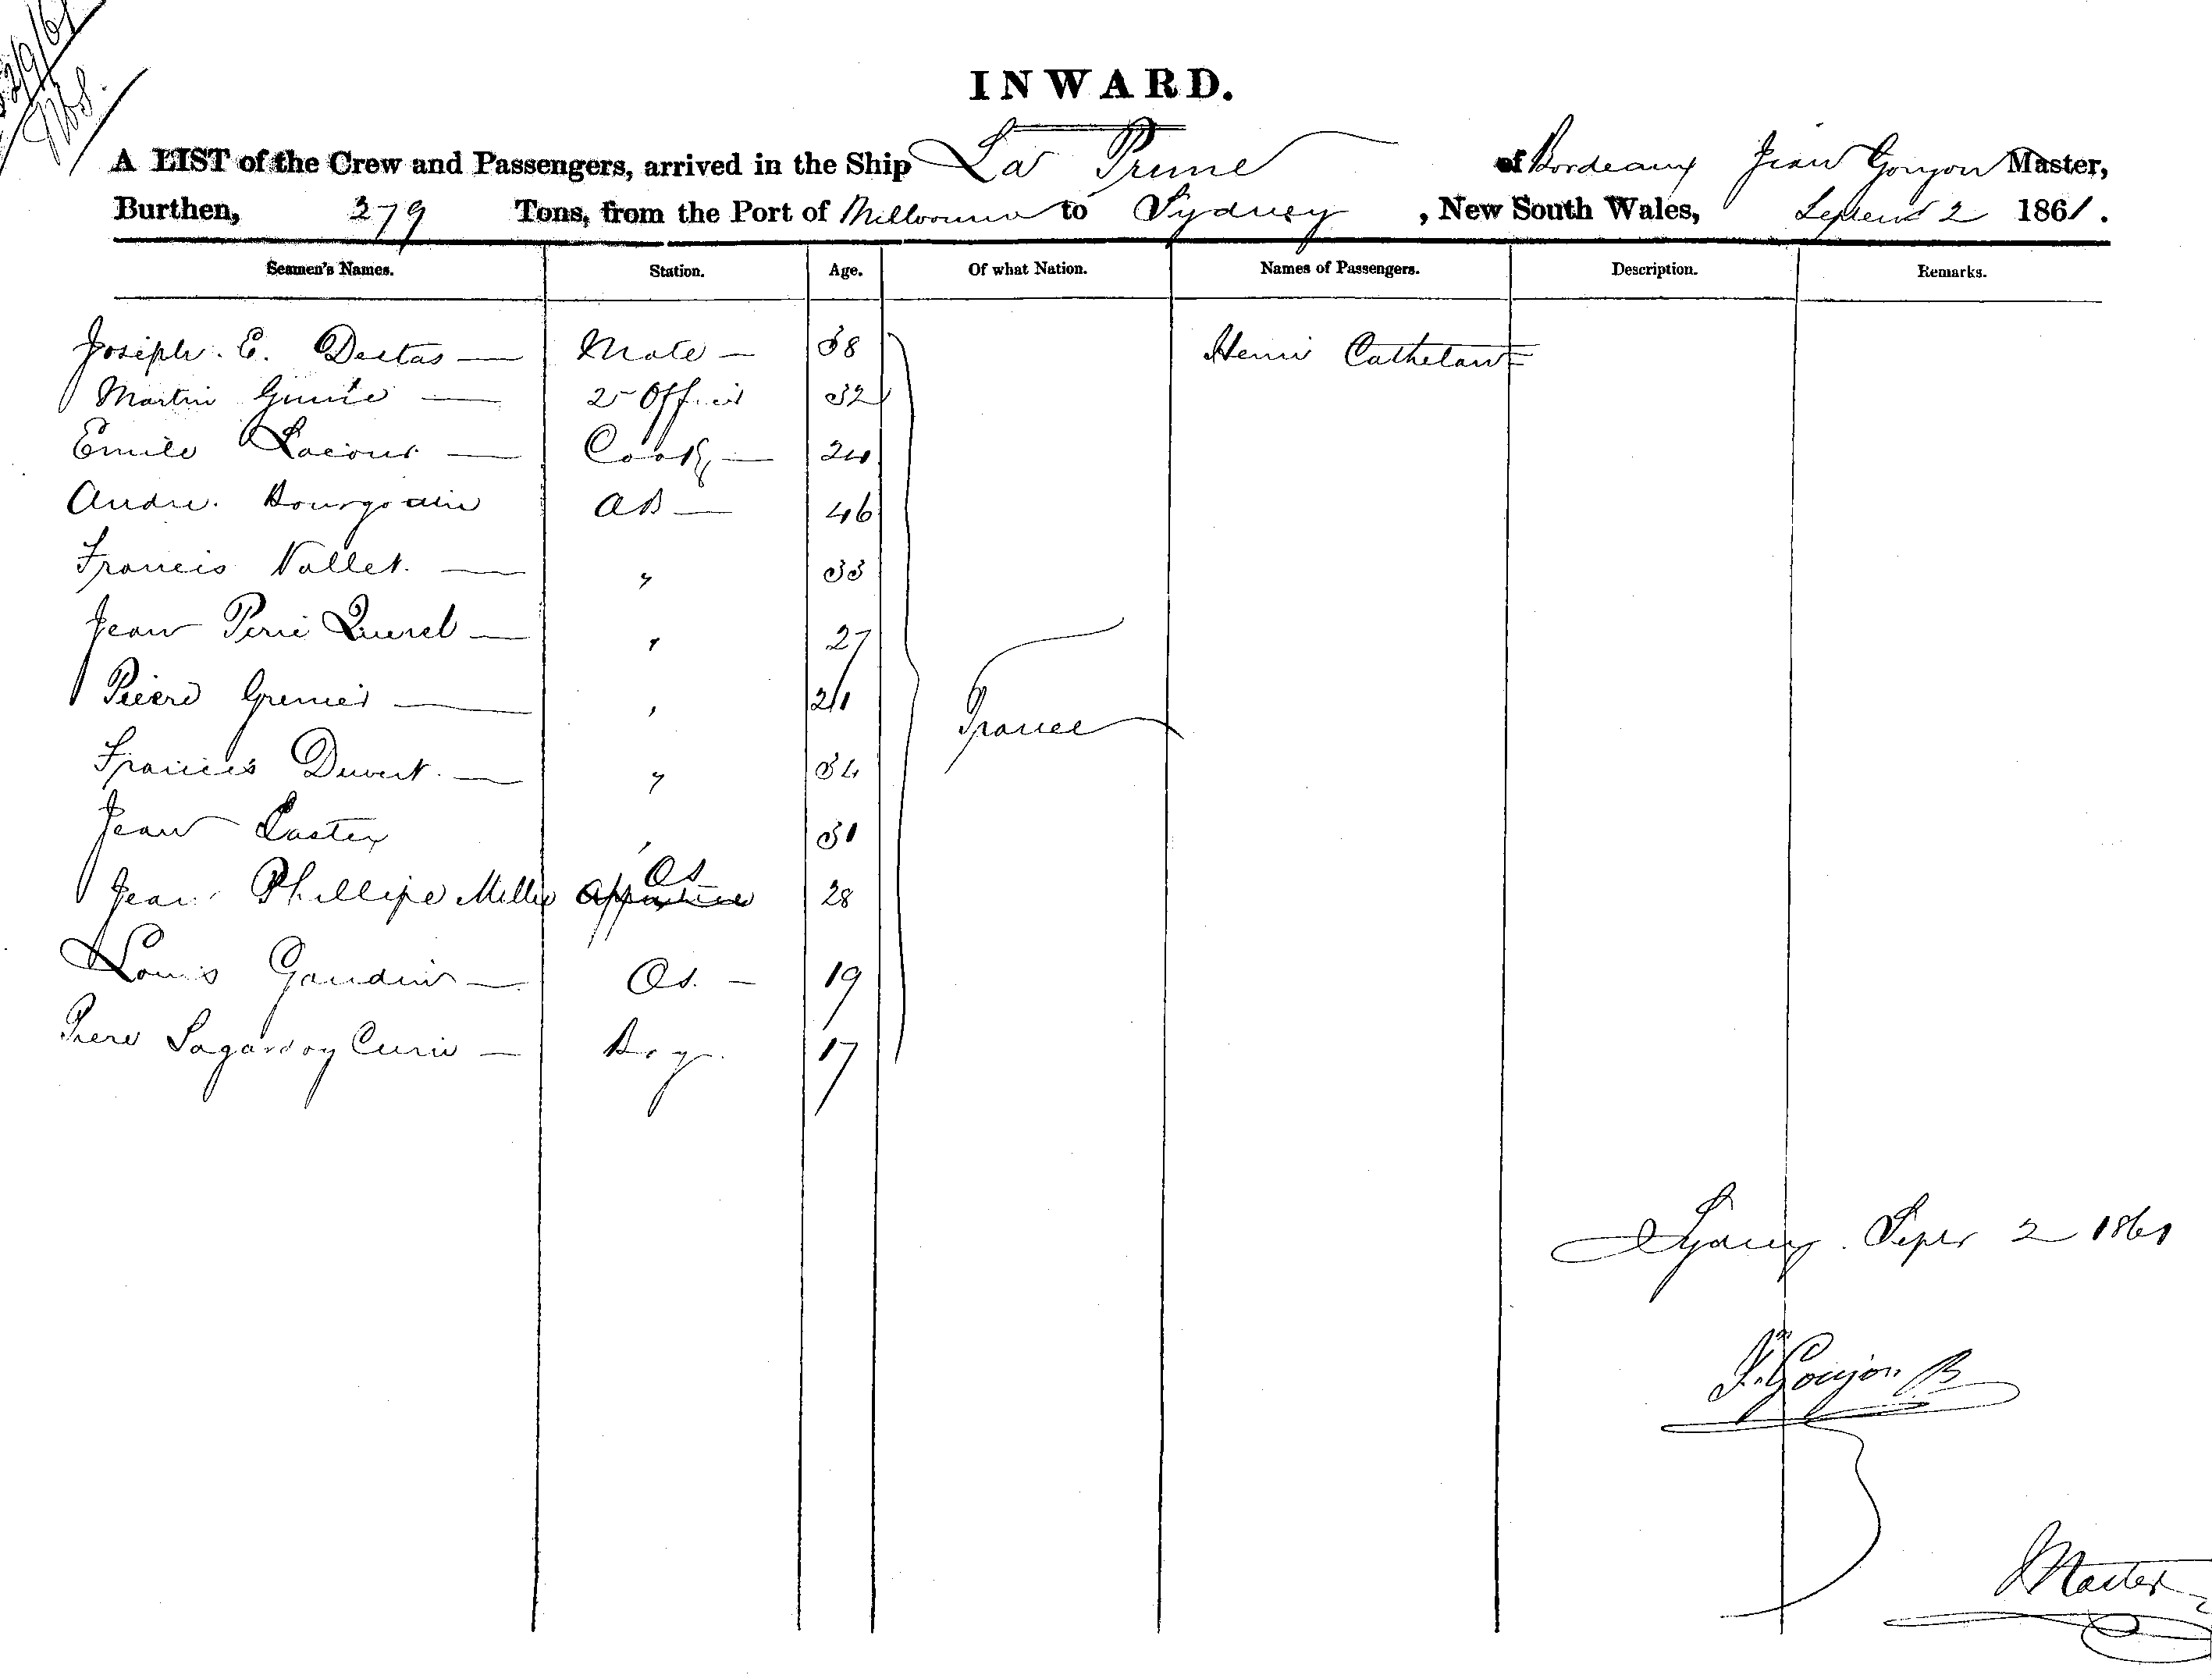 2/9/61
INWARD.
A LIST of the Crew and Passengers, arrived in the Ship La Prune of Bordeaux Jean Goujon Master,
Burthen, 379 Tons, from the Port of Melbourne to Sydney, New South Wales, 2 1861.
Seamen's Names. Station. Age. Of what Nation. Names of Passengers. Description. Remarks.
Joseph. E. Destas — Mate — 38 Henri
Martin — 2 Officer 32
Emile Lacour — Cook — 24
Andre. Bourgouin AB — 46
Francis Vallet. — " 33
Jean Perie Querel — " 27
Grenier — " 21
France
Francis Duvert. — " 34
Jean Lastex " 31
Jean Phillipe Os 28
Louis Gaudin — Os. — 19
Lagardoy — Boy. 17
Sydney. Septr 2 1861
J. Goujon
Master